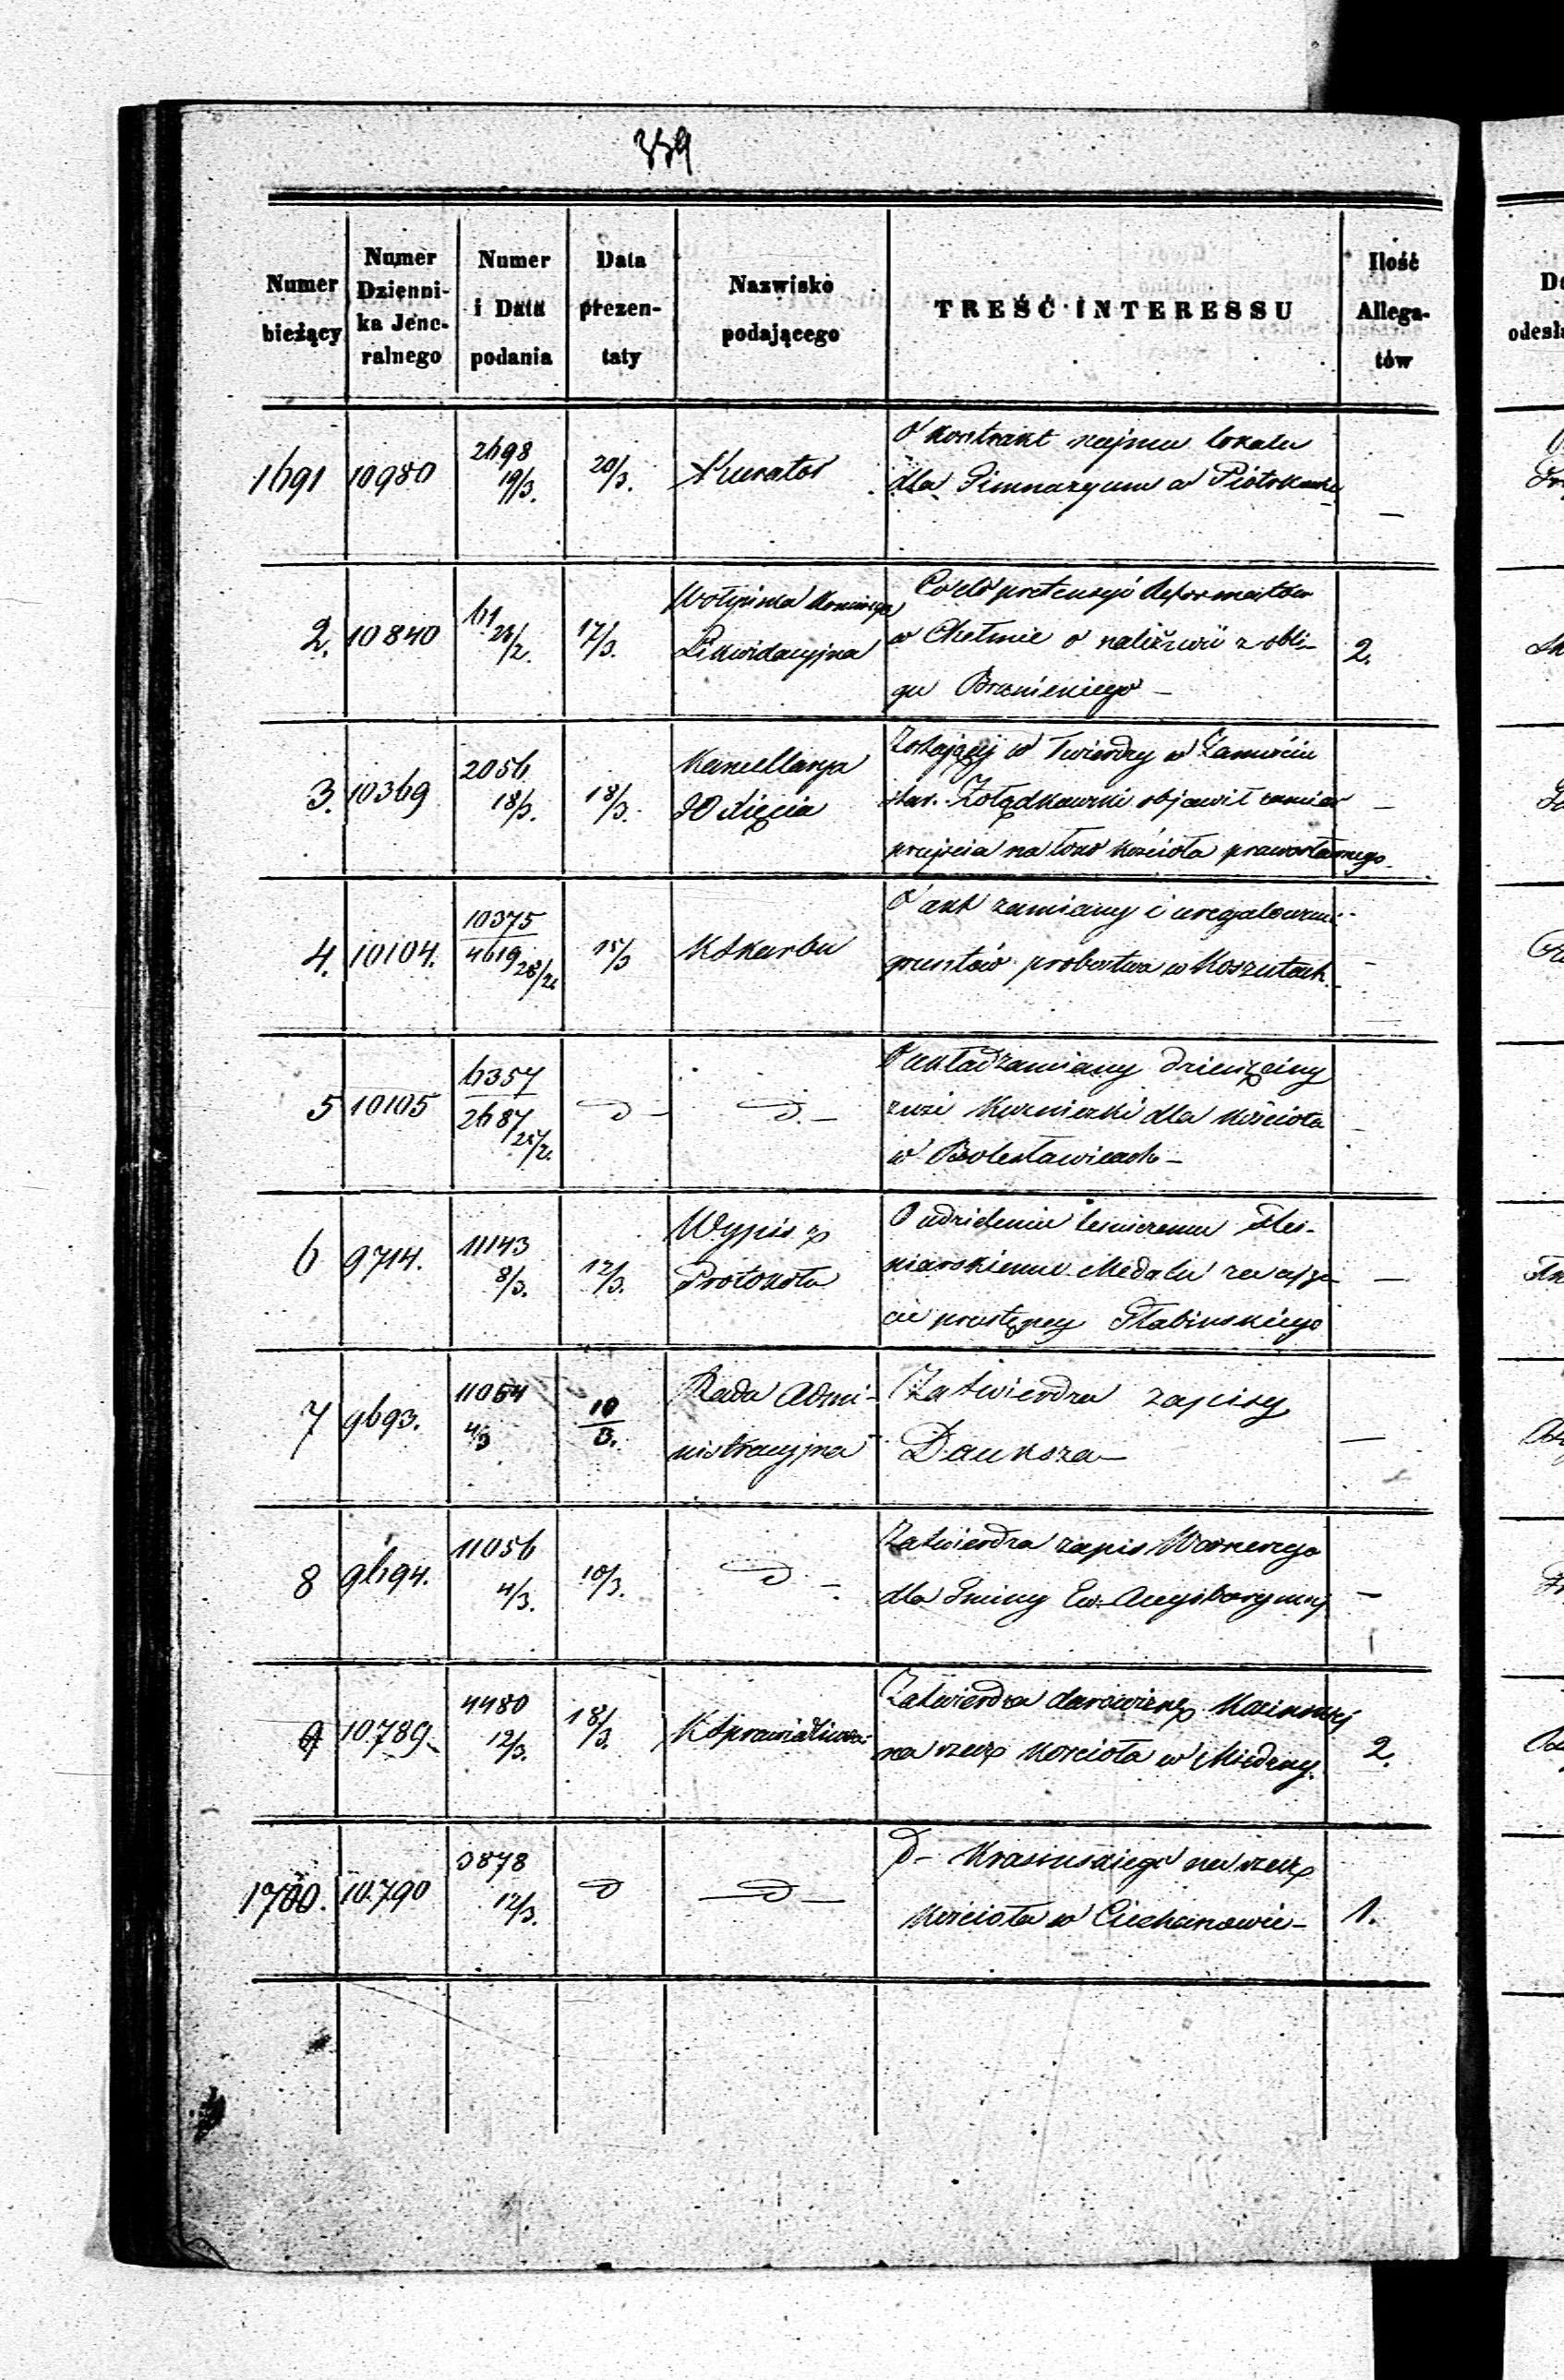 339
Numer bieżący | Numer Dzienni-ka Jene-ralnego | Numer i Data podania | Data prezen-taty | Nazwisko podającego | TREŚĆ INTERESSU | Ilość Allega-tów
1691 | 10980 | 2698 19/3. | 20/3. | Kurator | O kontrakt najmu lokalu
dla Gimnazyum w Piotrkowie | —
2. | 10840 | 61 28/2. | 17/3. | Wołyńska Komissya | Co do pretensyi Reformatów
Likwidacyjna | w Chełmie o należność z obli- | 2.
gu
3. | 10369 | 2056 18/3. | 18/3. | Kancellarya | Zostający w Twierdzy w Zamościu
JO Xięcia | Żołądkowski objawił zamiar | —
przejścia na łono kościoła prawosławnego
4. | 10104. | 10375 4619 28/2. | 15/3 | K Skarbu | O akt zamiany i uregulowani
gruntów probostwa w Koszutach | -
5 | 10105 | 6357 2687 25/2. | D — | D. — | O układ zamiany dziesięciny
dla kościoła | -
w Bolesławicach —
6 | 9714. | 11143 8/3. | 12/3. | Wypis z | O udzielenie leśniczemu Ples-
Protokołu | niarskiemu Medalu za uję- | —
cie przestępcy Słabinskiego
7 | 9693. | 11054 4/3 | 10/3. | Rada Admi- | Zatwierdza zapisy
nistracyjna | Dauksza — | —
8 | 9694. | 11056 4/3. | 10/3. | D. — | Zatwierdza zapis Wernerego
dla Gminy Ew. Augsburgskiej | —
9 | 10789. | 4480 12/3. | 18/3. | K Sprawiedliwości | Zatwierdza darowiznę
na rzecz kościoła w Miedzny. | 2.
1700. | 10790 | 3878 12/3. | D | — D — | D- Krasinskiego na rzecz
Kościoła w Ciechanowie — | 1.